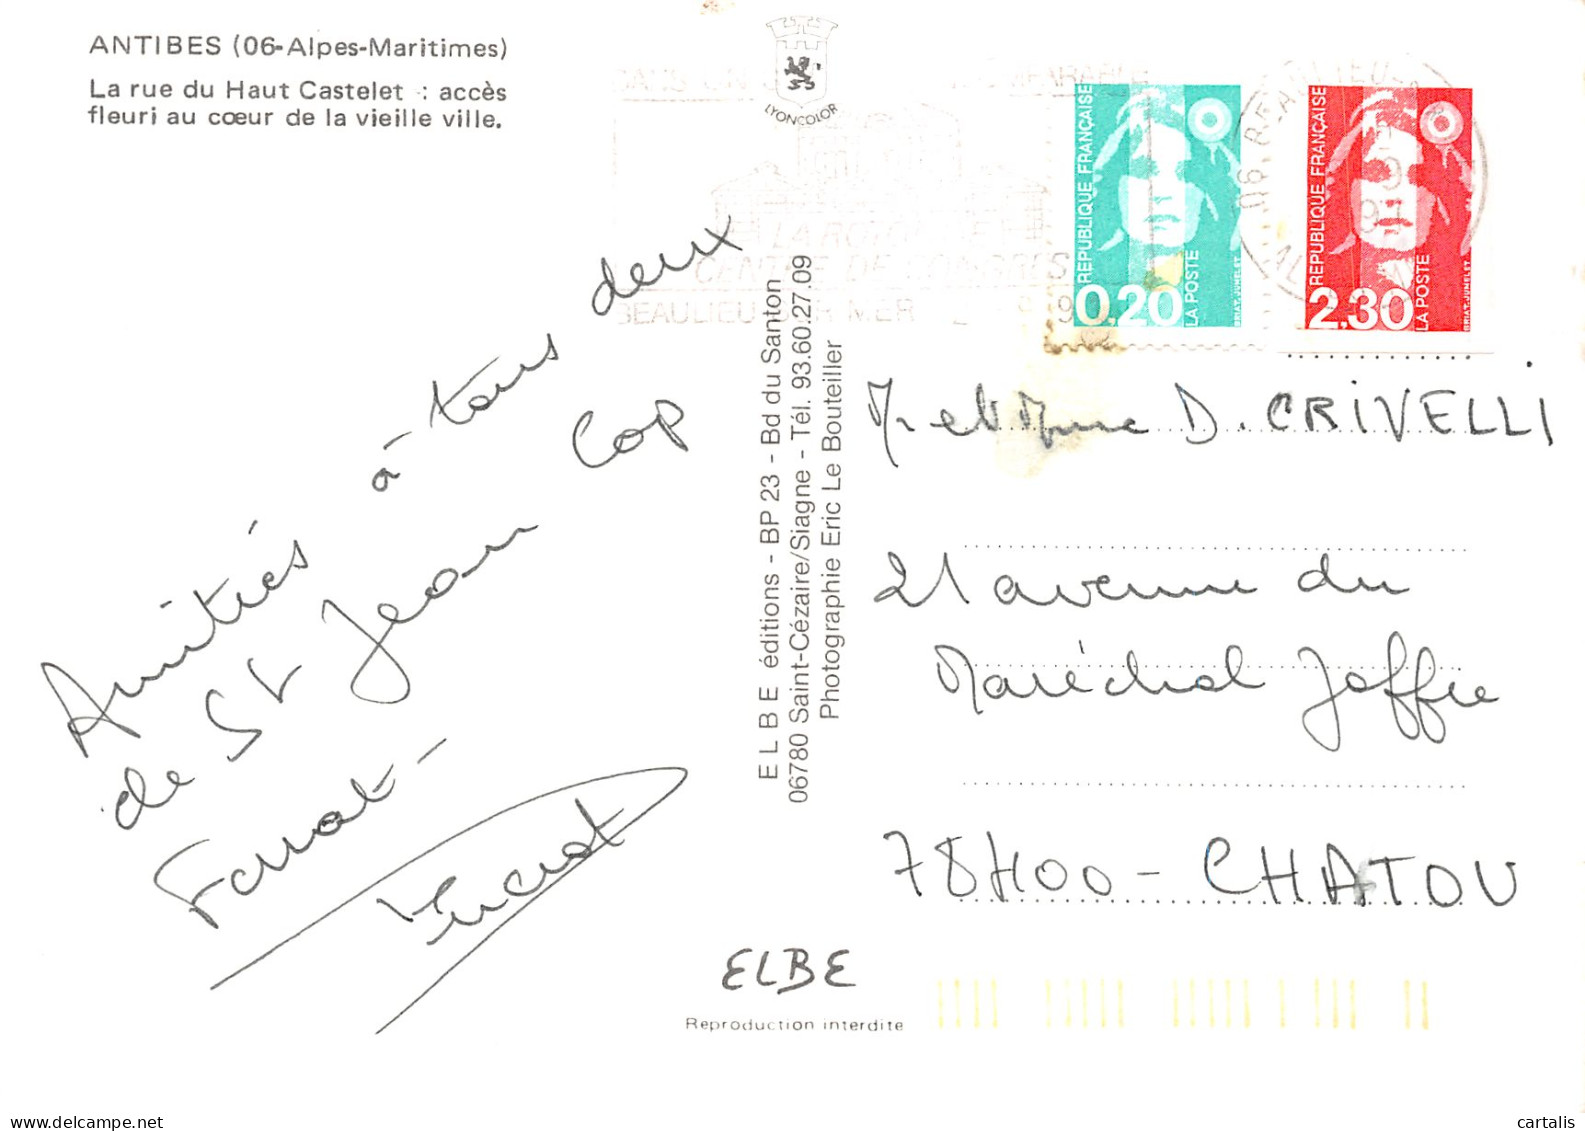 ANTIBES (06-Alpes-Maritimes)
La rue du Haut Castelet : accès
fleuri au cœur de la vieille ville.
LYONCOLOR
DANS UN
LA ROTONDE
CENTRE DE CONGRES
BEAULIEU SUR MER
RÉPUBLIQUE FRANÇAISE
0,20
LA POSTE
BRIAT. JUMELET
RÉPUBLIQUE FRANÇAISE
2,30
LA POSTE
BRIAT. JUMELET
Amitiés à tous deux
de St Jean Cap
Ferrat -
ELBE éditions - BP 23 - Bd du Santon
06780 Saint-Cézaire/Siagne - Tél. 93.60.27.09
Photographie Eric Le Bouteiller
Mr et Mme D. CRIVELLI
21 avenue du
Maréchal Joffre
78400 - CHATOU
ELBE
Reproduction interdite
Delcampe.net
cartalis